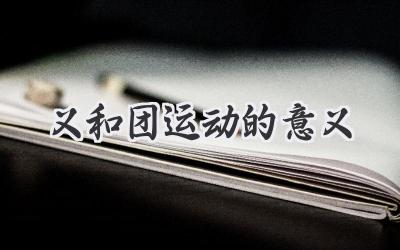 义和团运动的意义